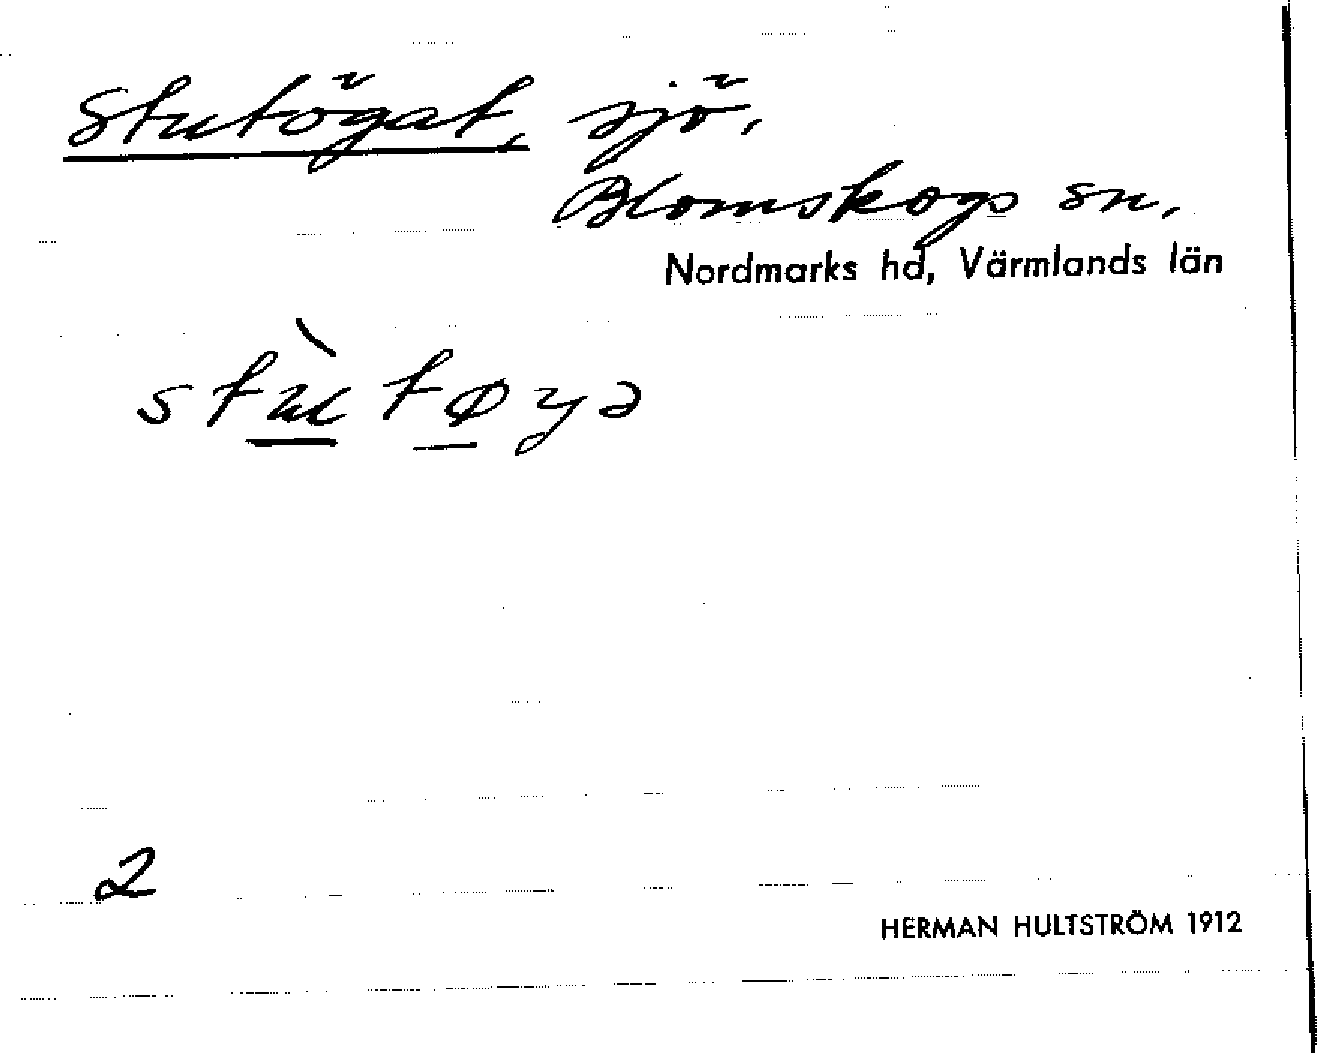 Stutögat, sjö,
Blomskogs sn,
Nordmarks hd, Värmlands län
stùtøyə
2
HERMAN HULTSTRÖM 1912